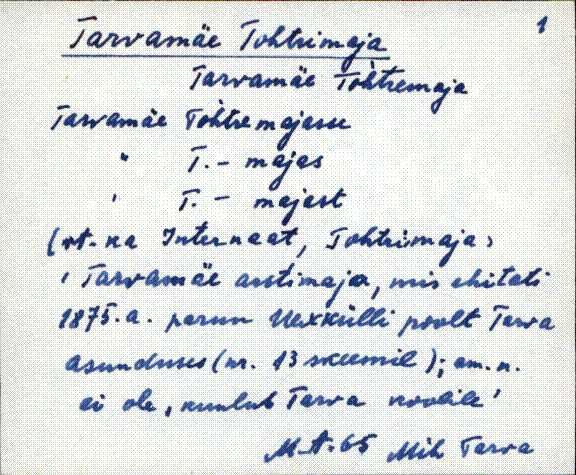 1
Tarvamäe Tohtrimaja
Tarvamäe Tohtremaja
Tarvamäe Tohtremajasse
" T.- majas
' T. - majast
(vt. ka Internaat, Tohtrimaja)
' Tarvamäe arstimaja, mis ehitati
1875.a. parun Uexkülli poolt Tarva
asunduses (nr. 13 skeemil); om. n.
ei ole, kuulub Tarva koolile'
M-A. 65 Mih Tarva